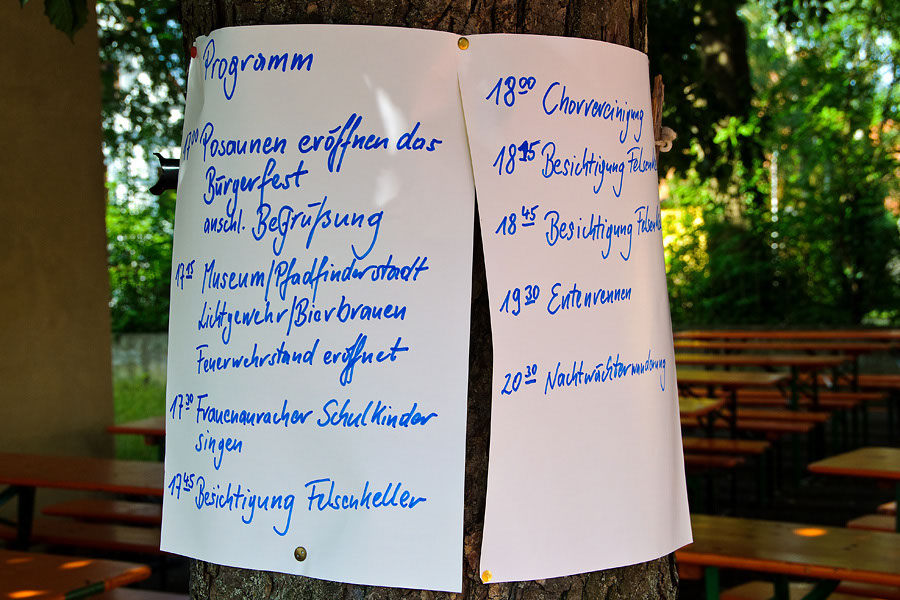 Programm
17 00 Posaunen eröffnen das
Bürgerfest
anschl. Begrüßung
17 15 Museum/Pfadfinderstadt
Lichtgewehr/Bierbrauen
Feuerwehrstand eröffnet
17 30 Frauenauracher Schulkinder
singen
17 45 Besichtigung Felsenkeller
18 00 Chorvereinigung
18 15 Besichtigung Felsenk
18 45 Besichtigung Felsenk
19 30 Entenrennen
20 30 Nachtwächterwanderung